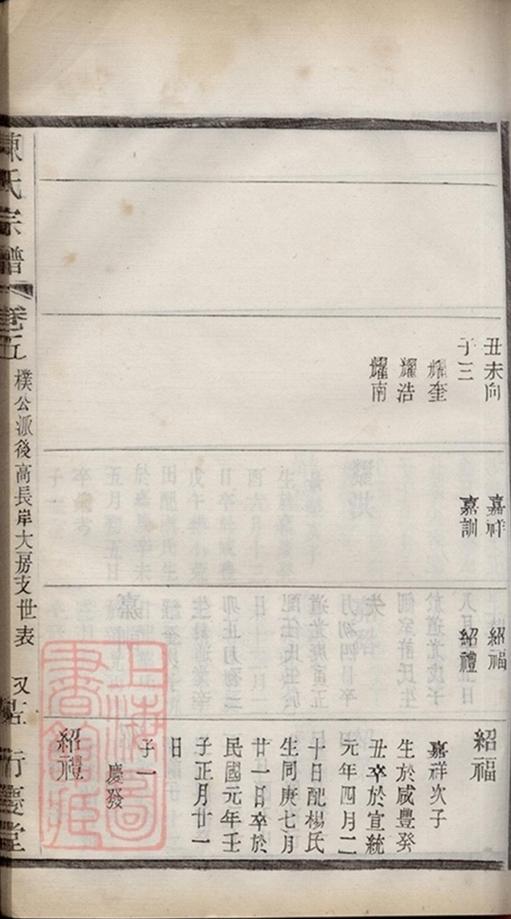 丑未向
子三
耀奎
耀浩
耀南
嘉祥
嘉訓
紹福
紹禮
紹福
嘉祥次子
生於咸豐癸
丑卒於宣統
元年四月二
十日配楊氏
生同庚七月
廿一日卒於
民國元年壬
子正月廿一
日
子一
慶發
紹禮
陳氏宗譜
卷五
樸公派後高長岸大房支世表
上海圖書館藏